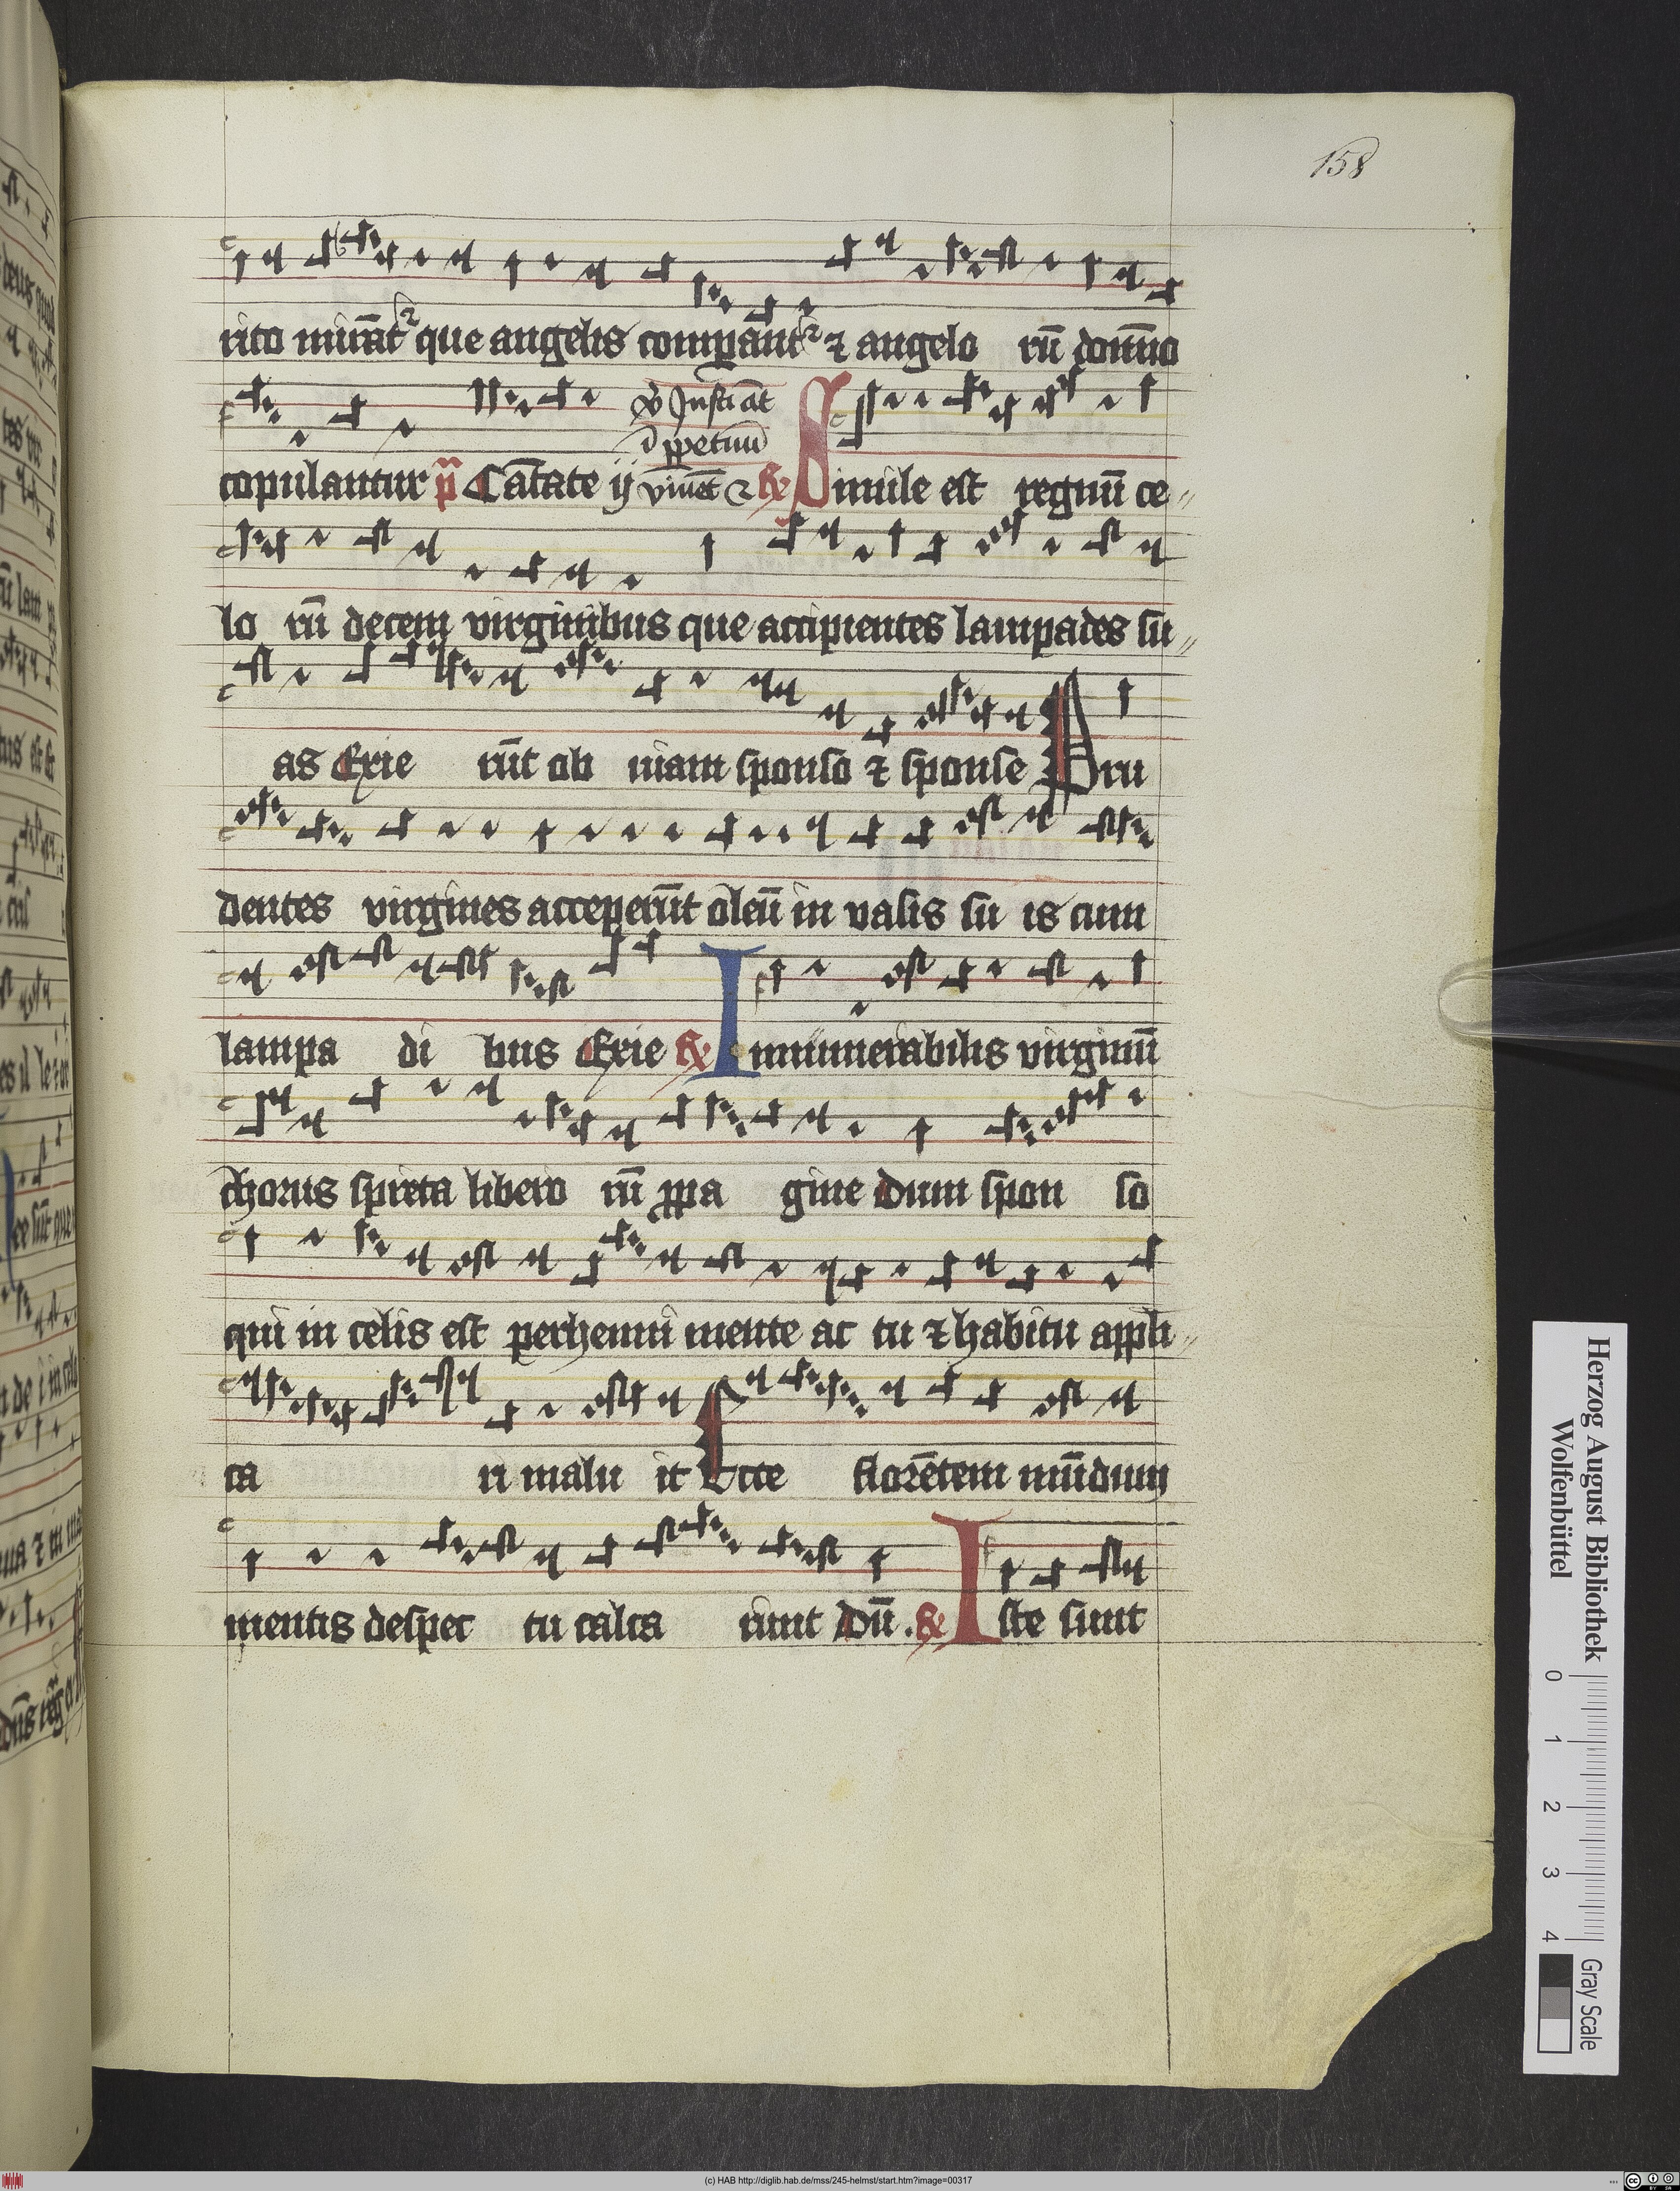 158
rito mirãtᷣ que angelis compãntᷣ ⁊ angelo rũ domño
copulantur p̃ Cãtate ij
ꝟ Justi aũt
ĩ ꝑpetuũ
viuẽt ⁊ ℟ Simile est regnũ ce〃
lo rũ decem virginibus que accipientes lampades su〃
as Exie rũt ob uiam sponso ⁊ sponse Pru
dentes virgines acceperũt oleũ in vasis su is cum
lampa di bus Exie ℟ Innumerabilis virginũ
chorus spreta libero rũ ꝓpa gine dum spon so
qui in celis est perhenni mente ac tu ⁊ habitu appli〃
ca ri malu it Ecce florẽtem mũdum
mentis despec tu calca runt Dũ. ℟ Iste sunt
Herzog August Bibliothek
Wolfenbüttel
0 1 2 3 4
Gray Scale
(c) HAB http://diglib.hab.de/mss/245-helmst/start.htm?image=00317